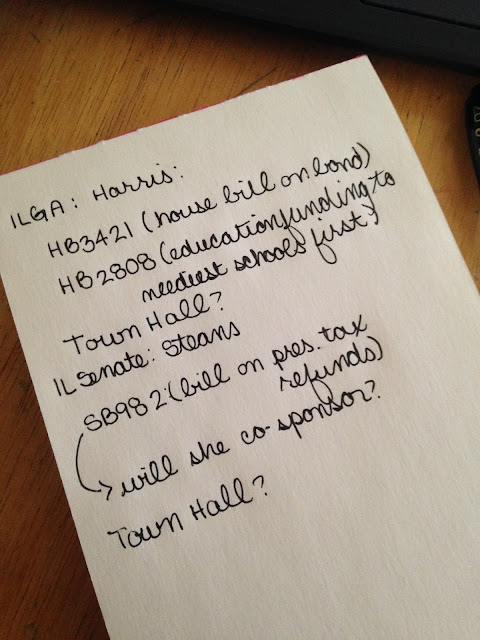 ILGA: Harris:
HB3421 (house bill on bond)
HB2808 (education funding to
neediest schools first)
Town Hall?
IL Senate: Steans
SB982: (bill on pres. tax
refunds)
→ will she co-sponsor?
Town Hall?